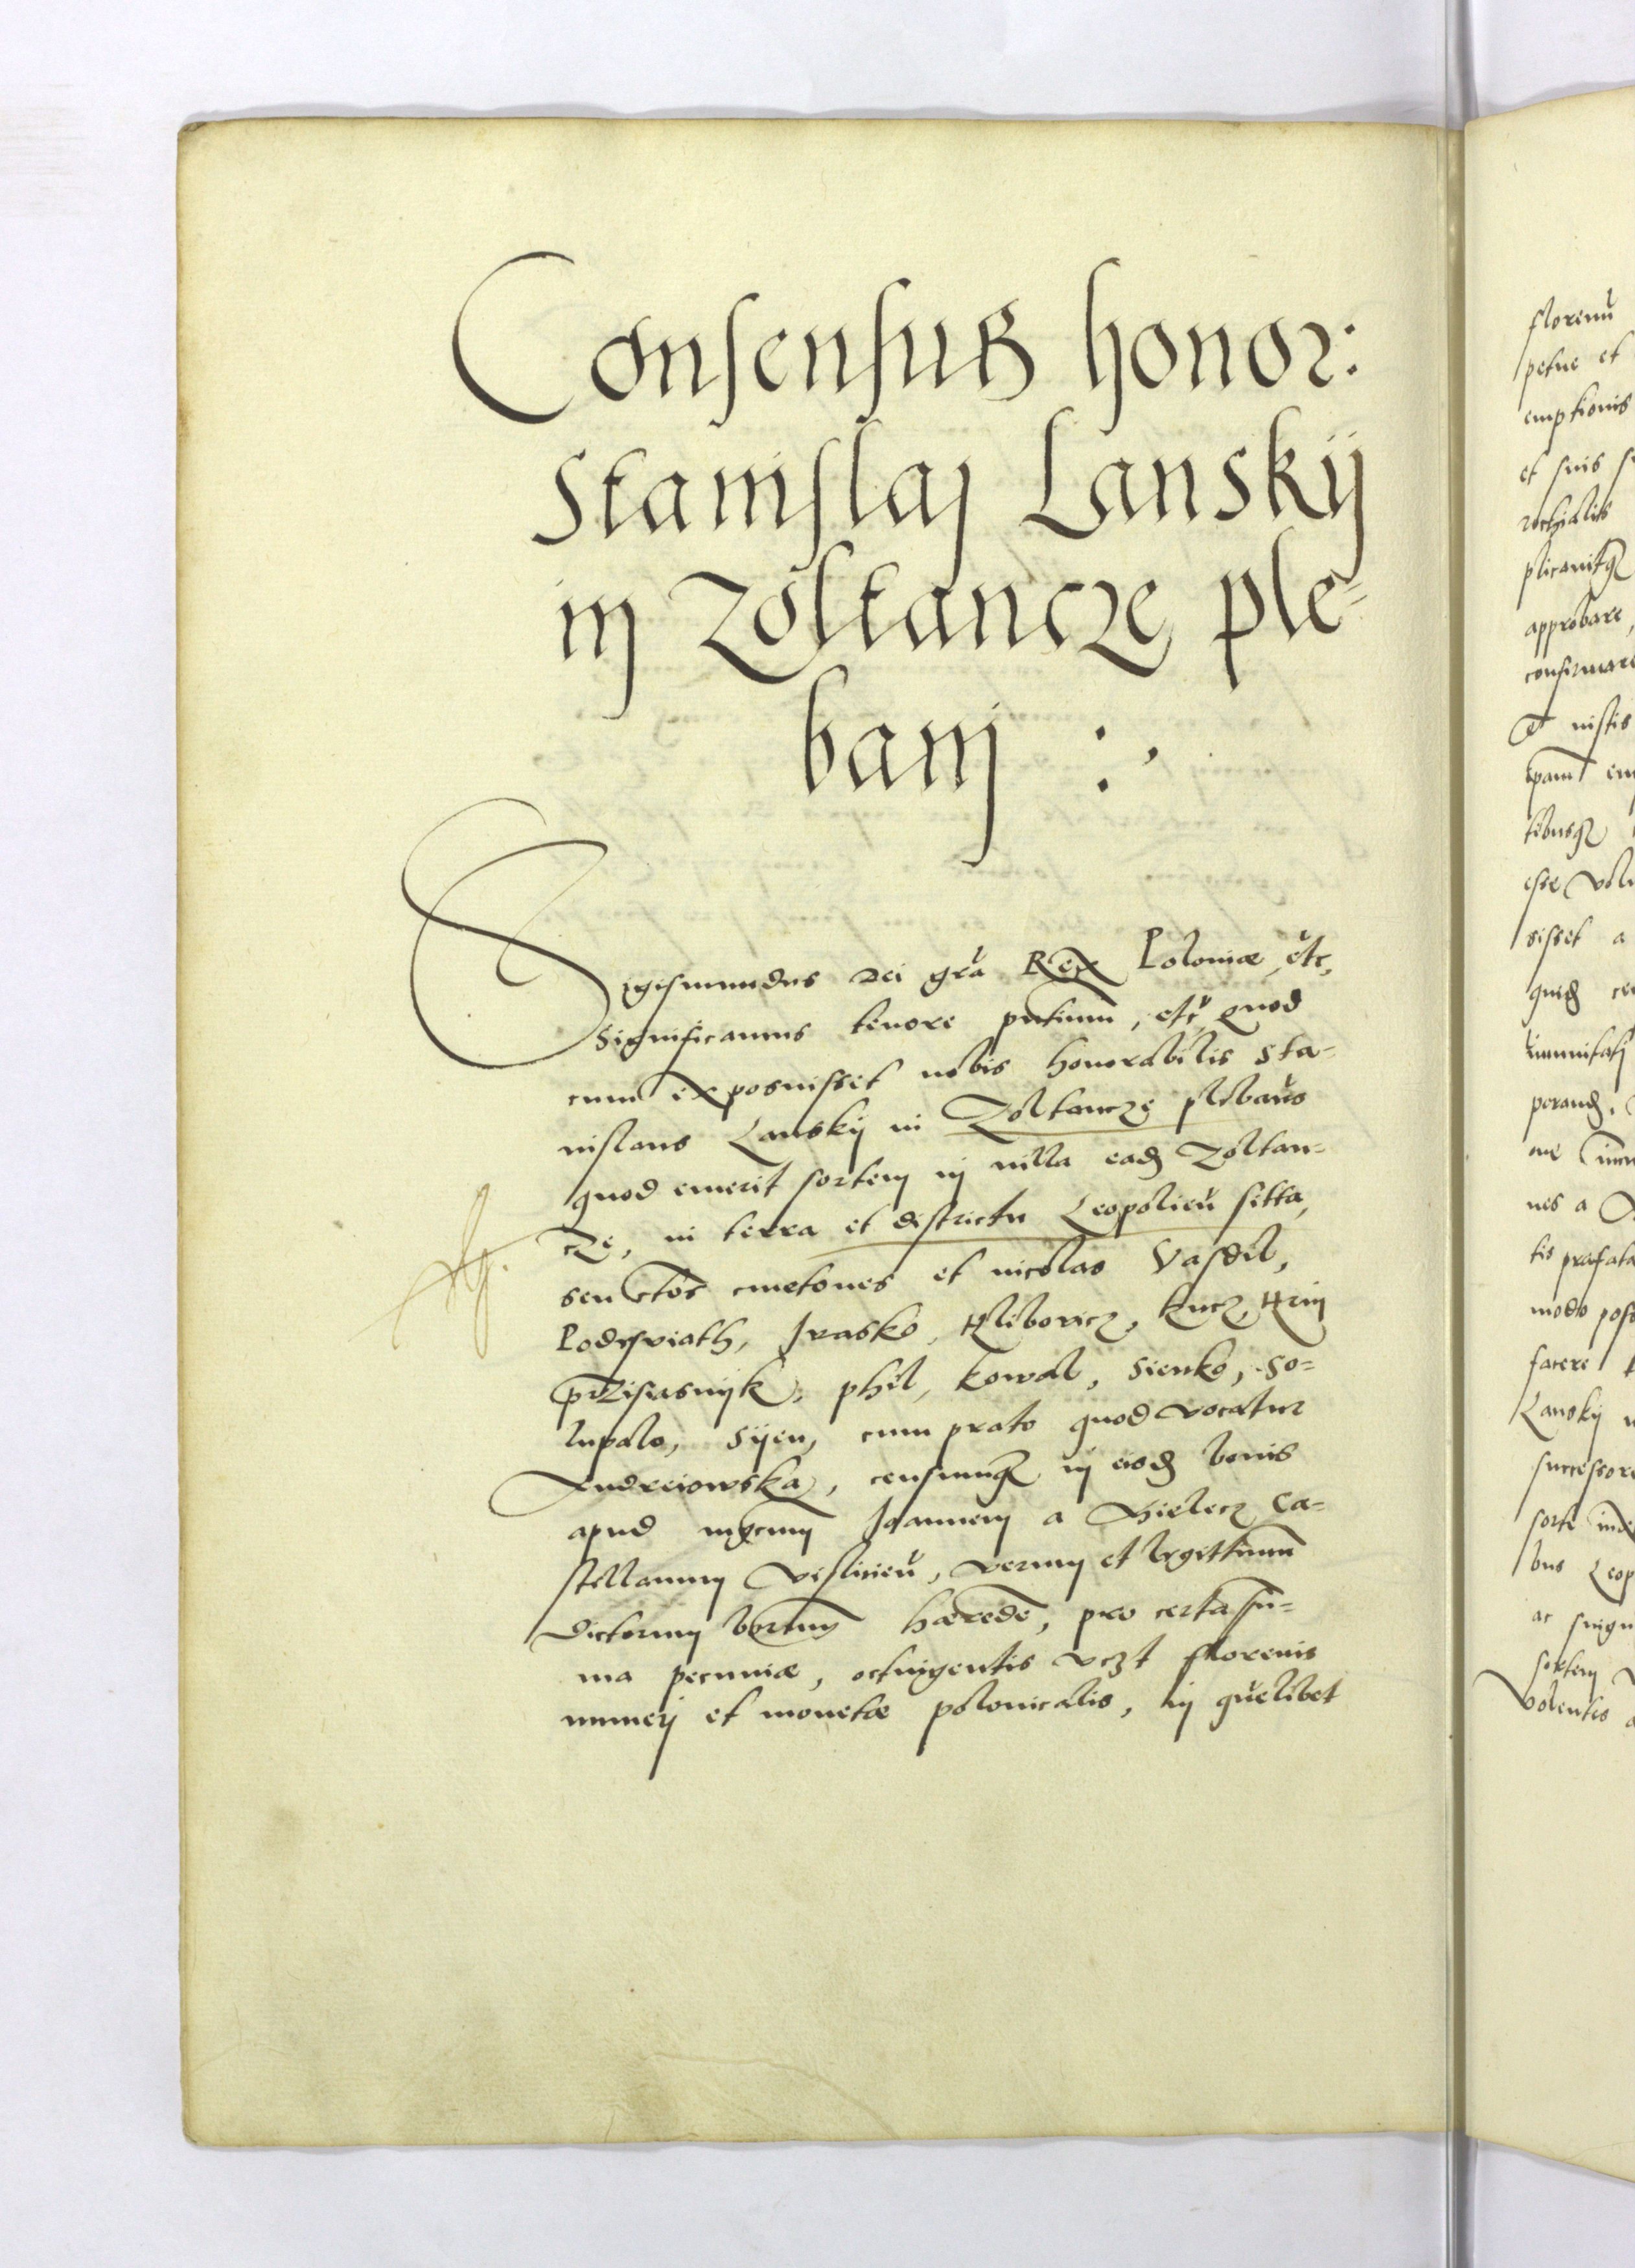 Consensus honor:
Stanislaj Lanskij
in Zoltancze ple-
banj :
Sigismundus Dei gra Rex Poloniæ, etc,
Significamus tenore pntium, etc quod
cum exposuisset nobis honorabilis Sta-
nislaus Lanskij in Zoltancze plebanus
quod emerit sortem in villa ead Zoltan-
cze, in terra et districtu Leopolien sitta,
seu cmetones et incolas Vassil,
Jvasko, Hliboricz, Kucz, Hrin
phil, Kowal, Sienko, So-
lupalo, Sijen, cum prato quod vocatur
Andreiowska, censumq in eisd bonis
apud mgcum Joannem a Thielecz Ca-
stellanum Vislicien, verum et legittimum
dictorum bonorum hæredem, pro certa sum-
ma pecuniæ, octingentis vczt florenis
numerj et monetæ polonicalis, in quelibet
florenu
petue et
emptionis
et suis
rochialis
plicauitq
approbare,
confirmare
et
tibusq
esse
sisset a
quid
immunitatj
nes a
tis præfata
modo
facere
Lanskij
successore
sorte
bus Leop
ac
sortem
Volentes